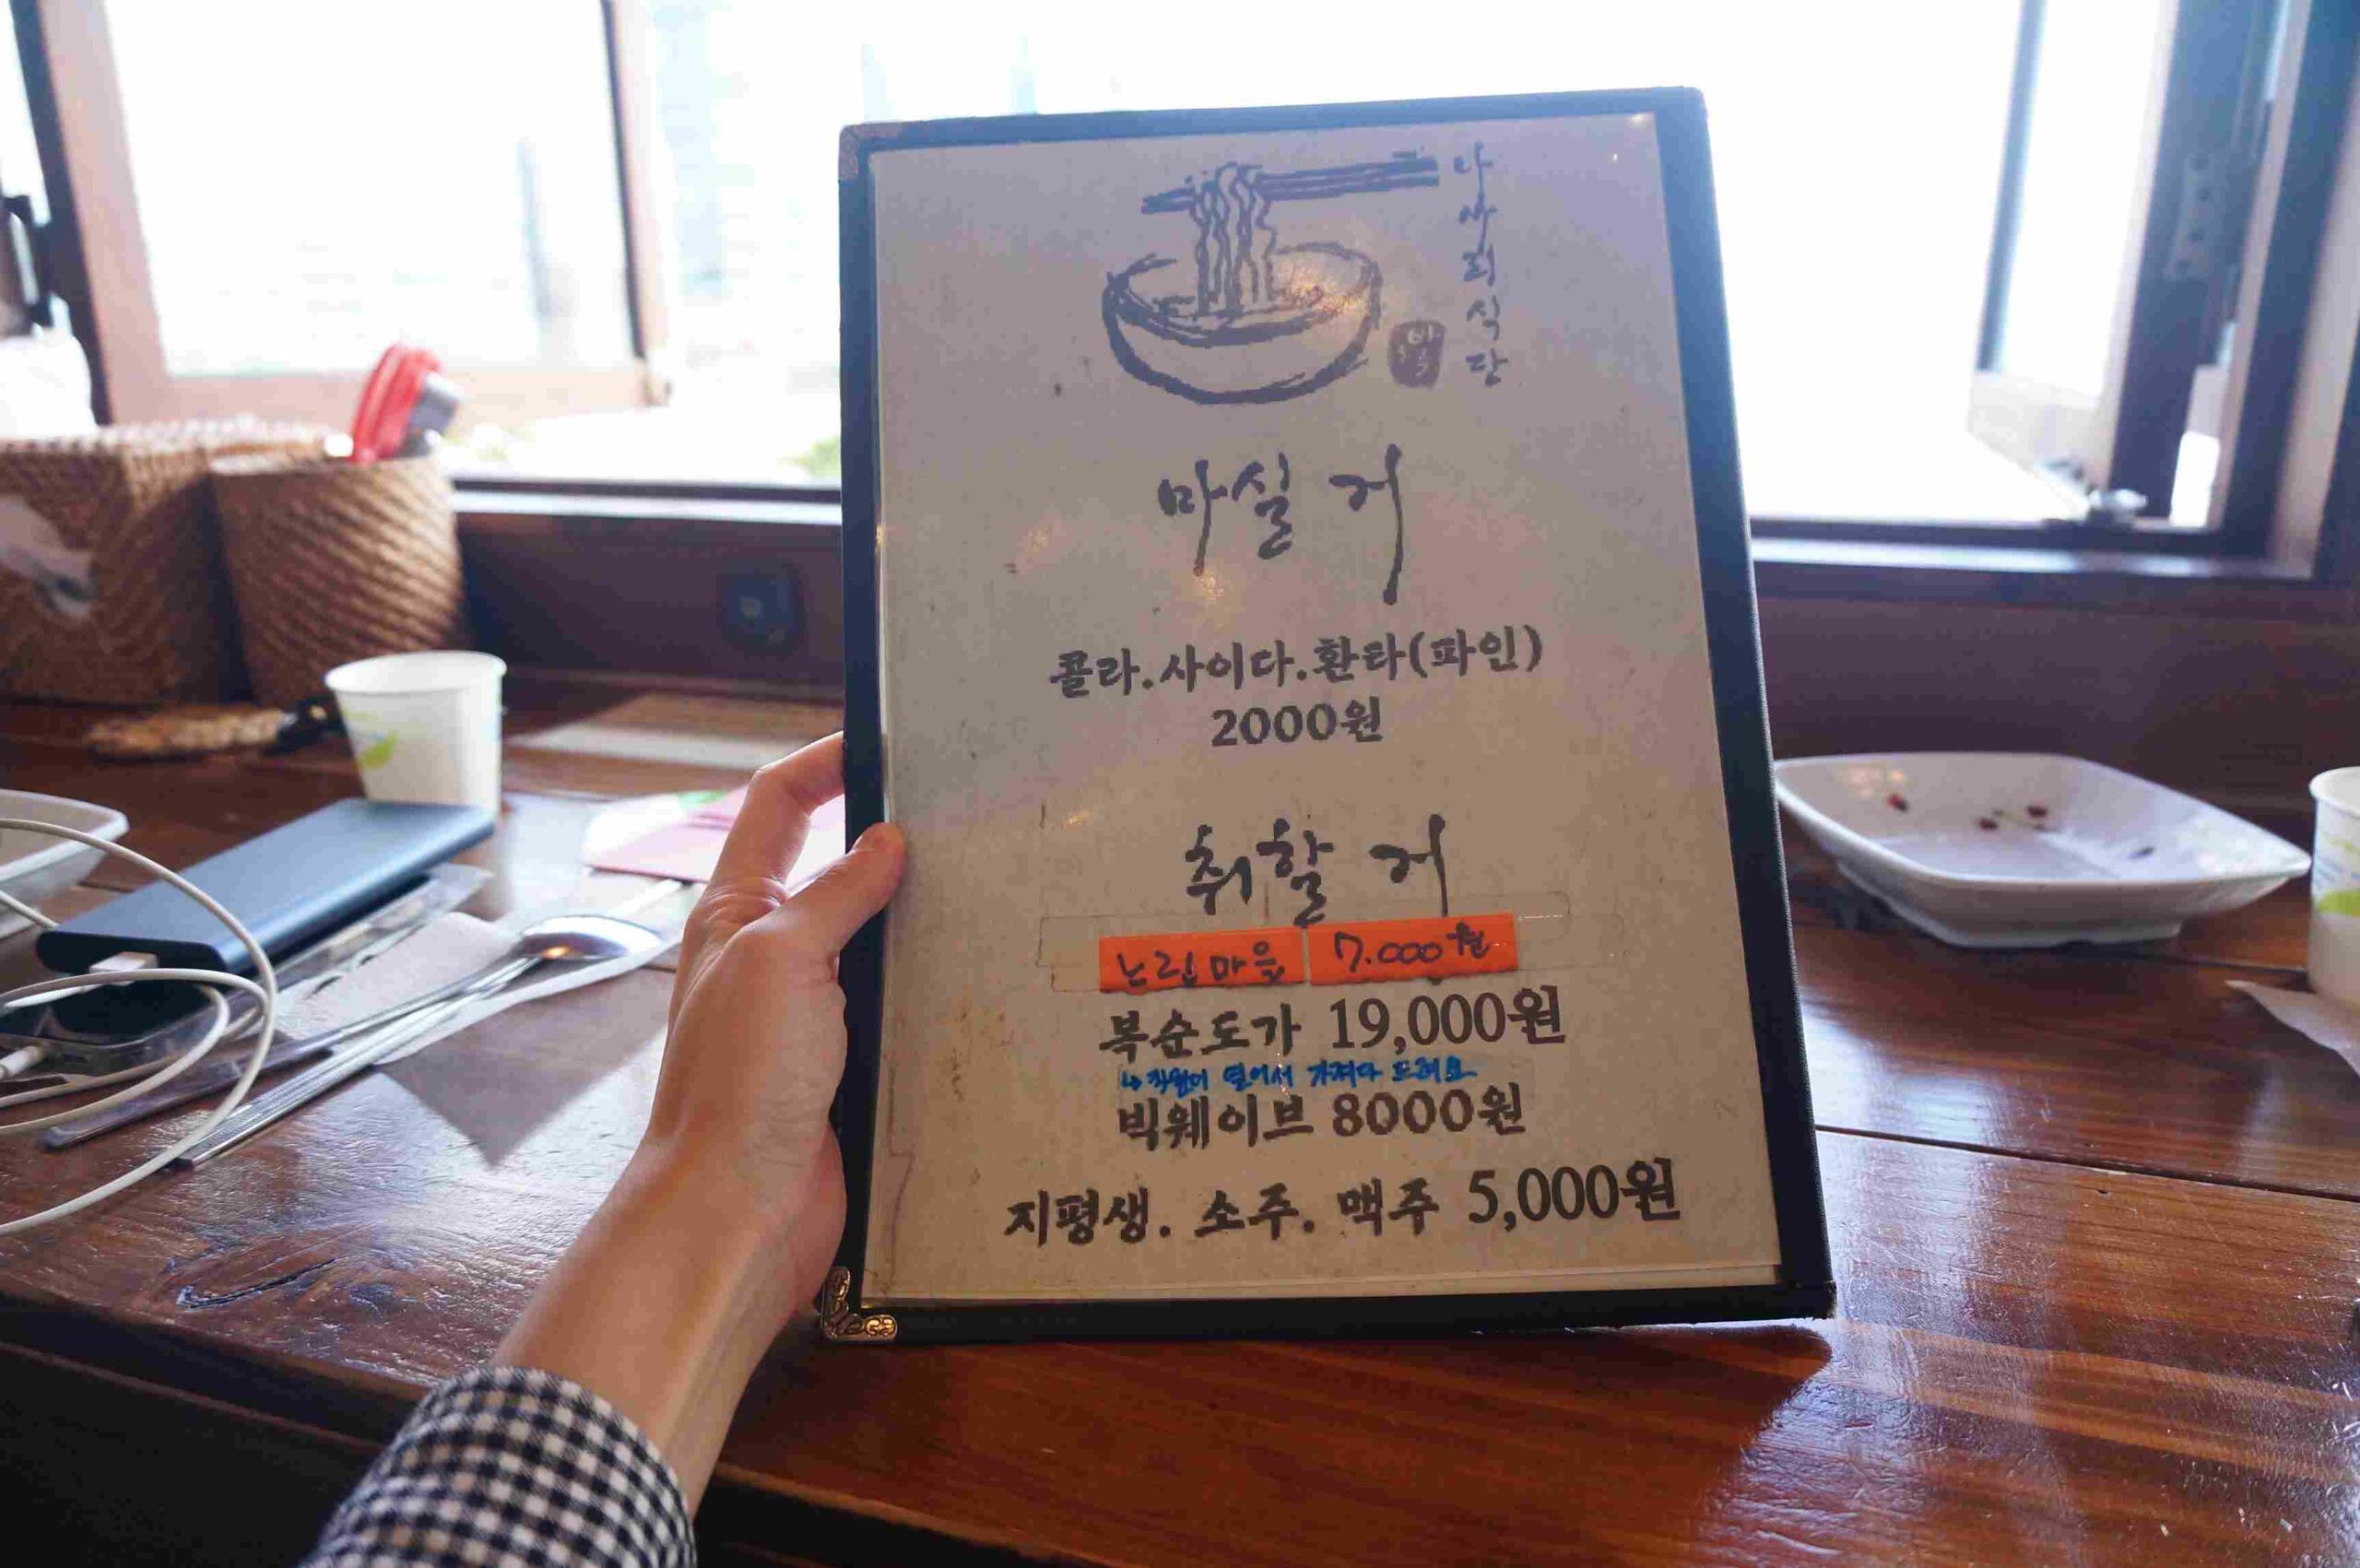 나싸리식당
마실 거
콜라.사이다.환타(파인)
2000원
취할 거
느린마을 7.000원
복순도가 19,000원
↳ 직원이 열어서 가져다 드려요
빅웨이브 8000원
지평생. 소주. 맥주 5,000원